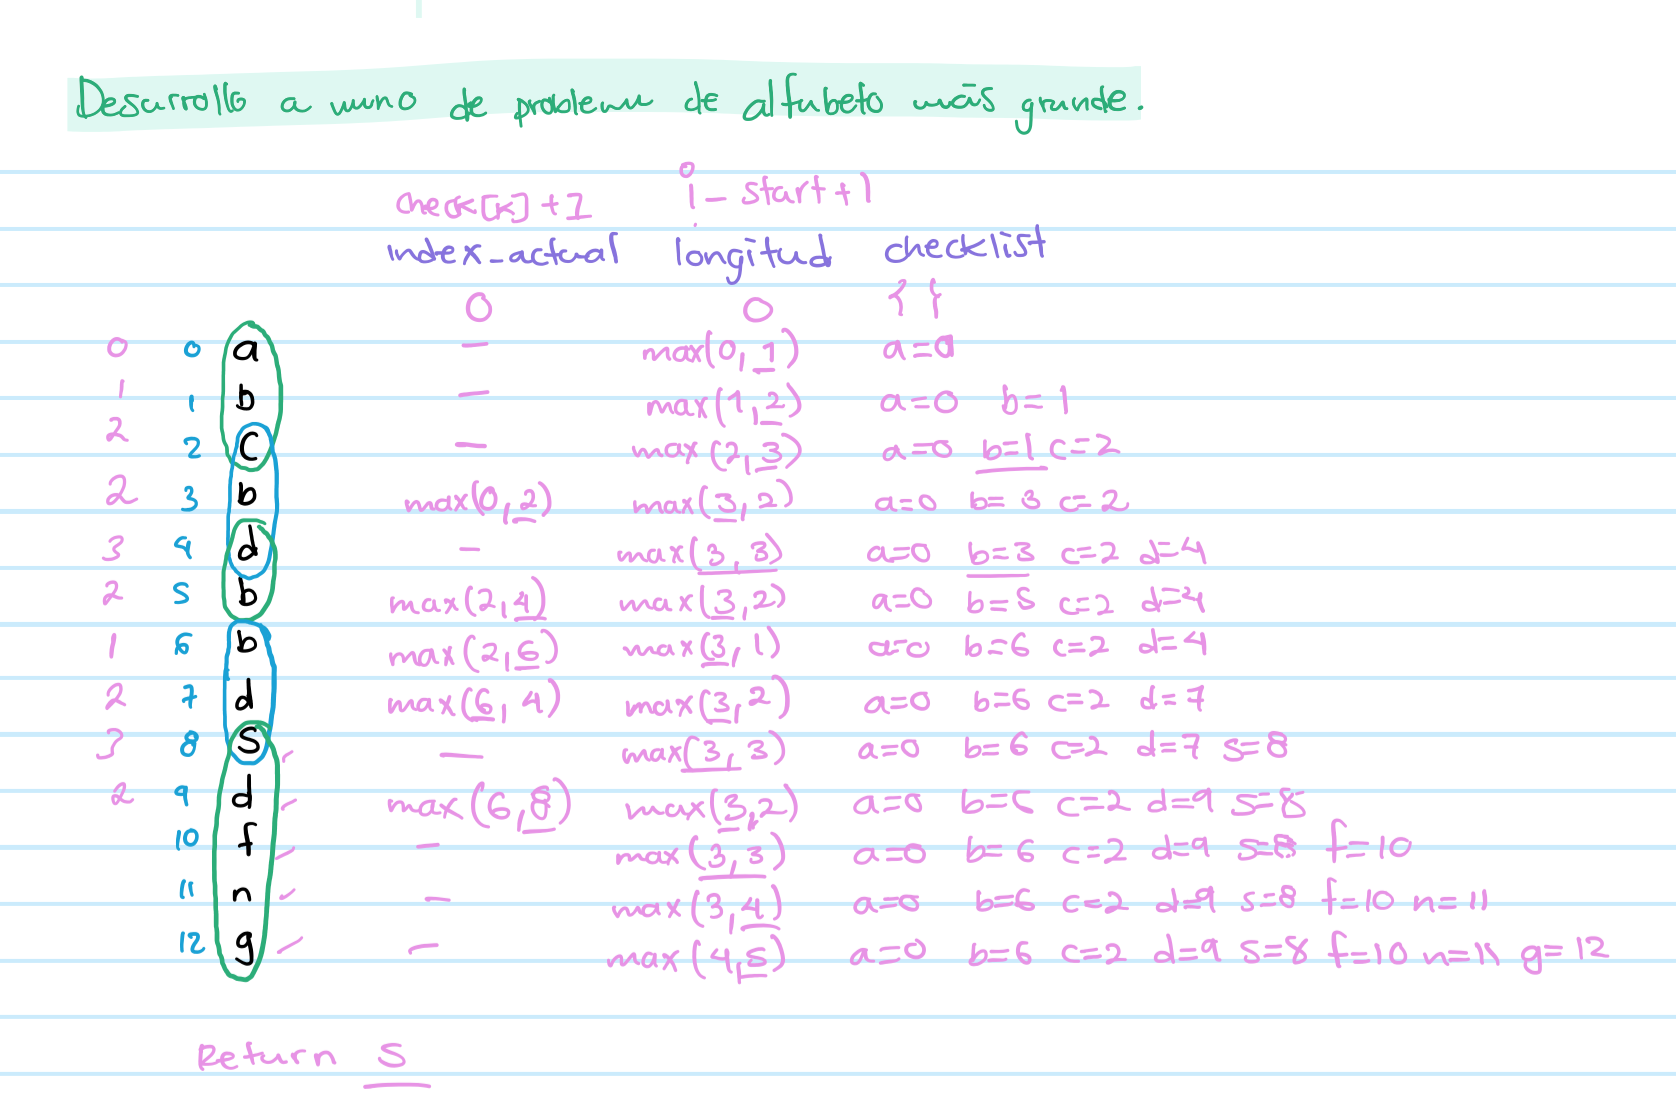 Desarrollo a mano de problema de alfabeto más grande.
check[k]+1 i-start+1
index_actual longitud checklist
0 0 { }
0 0 a - max(0,1) a=0
1 1 b - max(1,2) a=0 b=1
2 2 c - max(2,3) a=0 b=1 c=2
2 3 b max(0,2) max(3,2) a=0 b=3 c=2
3 4 d - max(3,3) a=0 b=3 c=2 d=4
2 5 b max(2,4) max(3,2) a=0 b=5 c=2 d=4
1 6 b max(2,6) max(3,1) a=0 b=6 c=2 d=4
2 7 d max(6,4) max(3,2) a=0 b=6 c=2 d=7
3 8 s - max(3,3) a=0 b=6 c=2 d=7 s=8
2 9 d max(6,8) max(3,2) a=0 b=6 c=2 d=9 s=8
10 f - max(3,3) a=0 b=6 c=2 d=9 s=8 f=10
11 n - max(3,4) a=0 b=6 c=2 d=9 s=8 f=10 n=11
12 g - max(4,5) a=0 b=6 c=2 d=9 s=8 f=10 n=11 g=12
Return 5